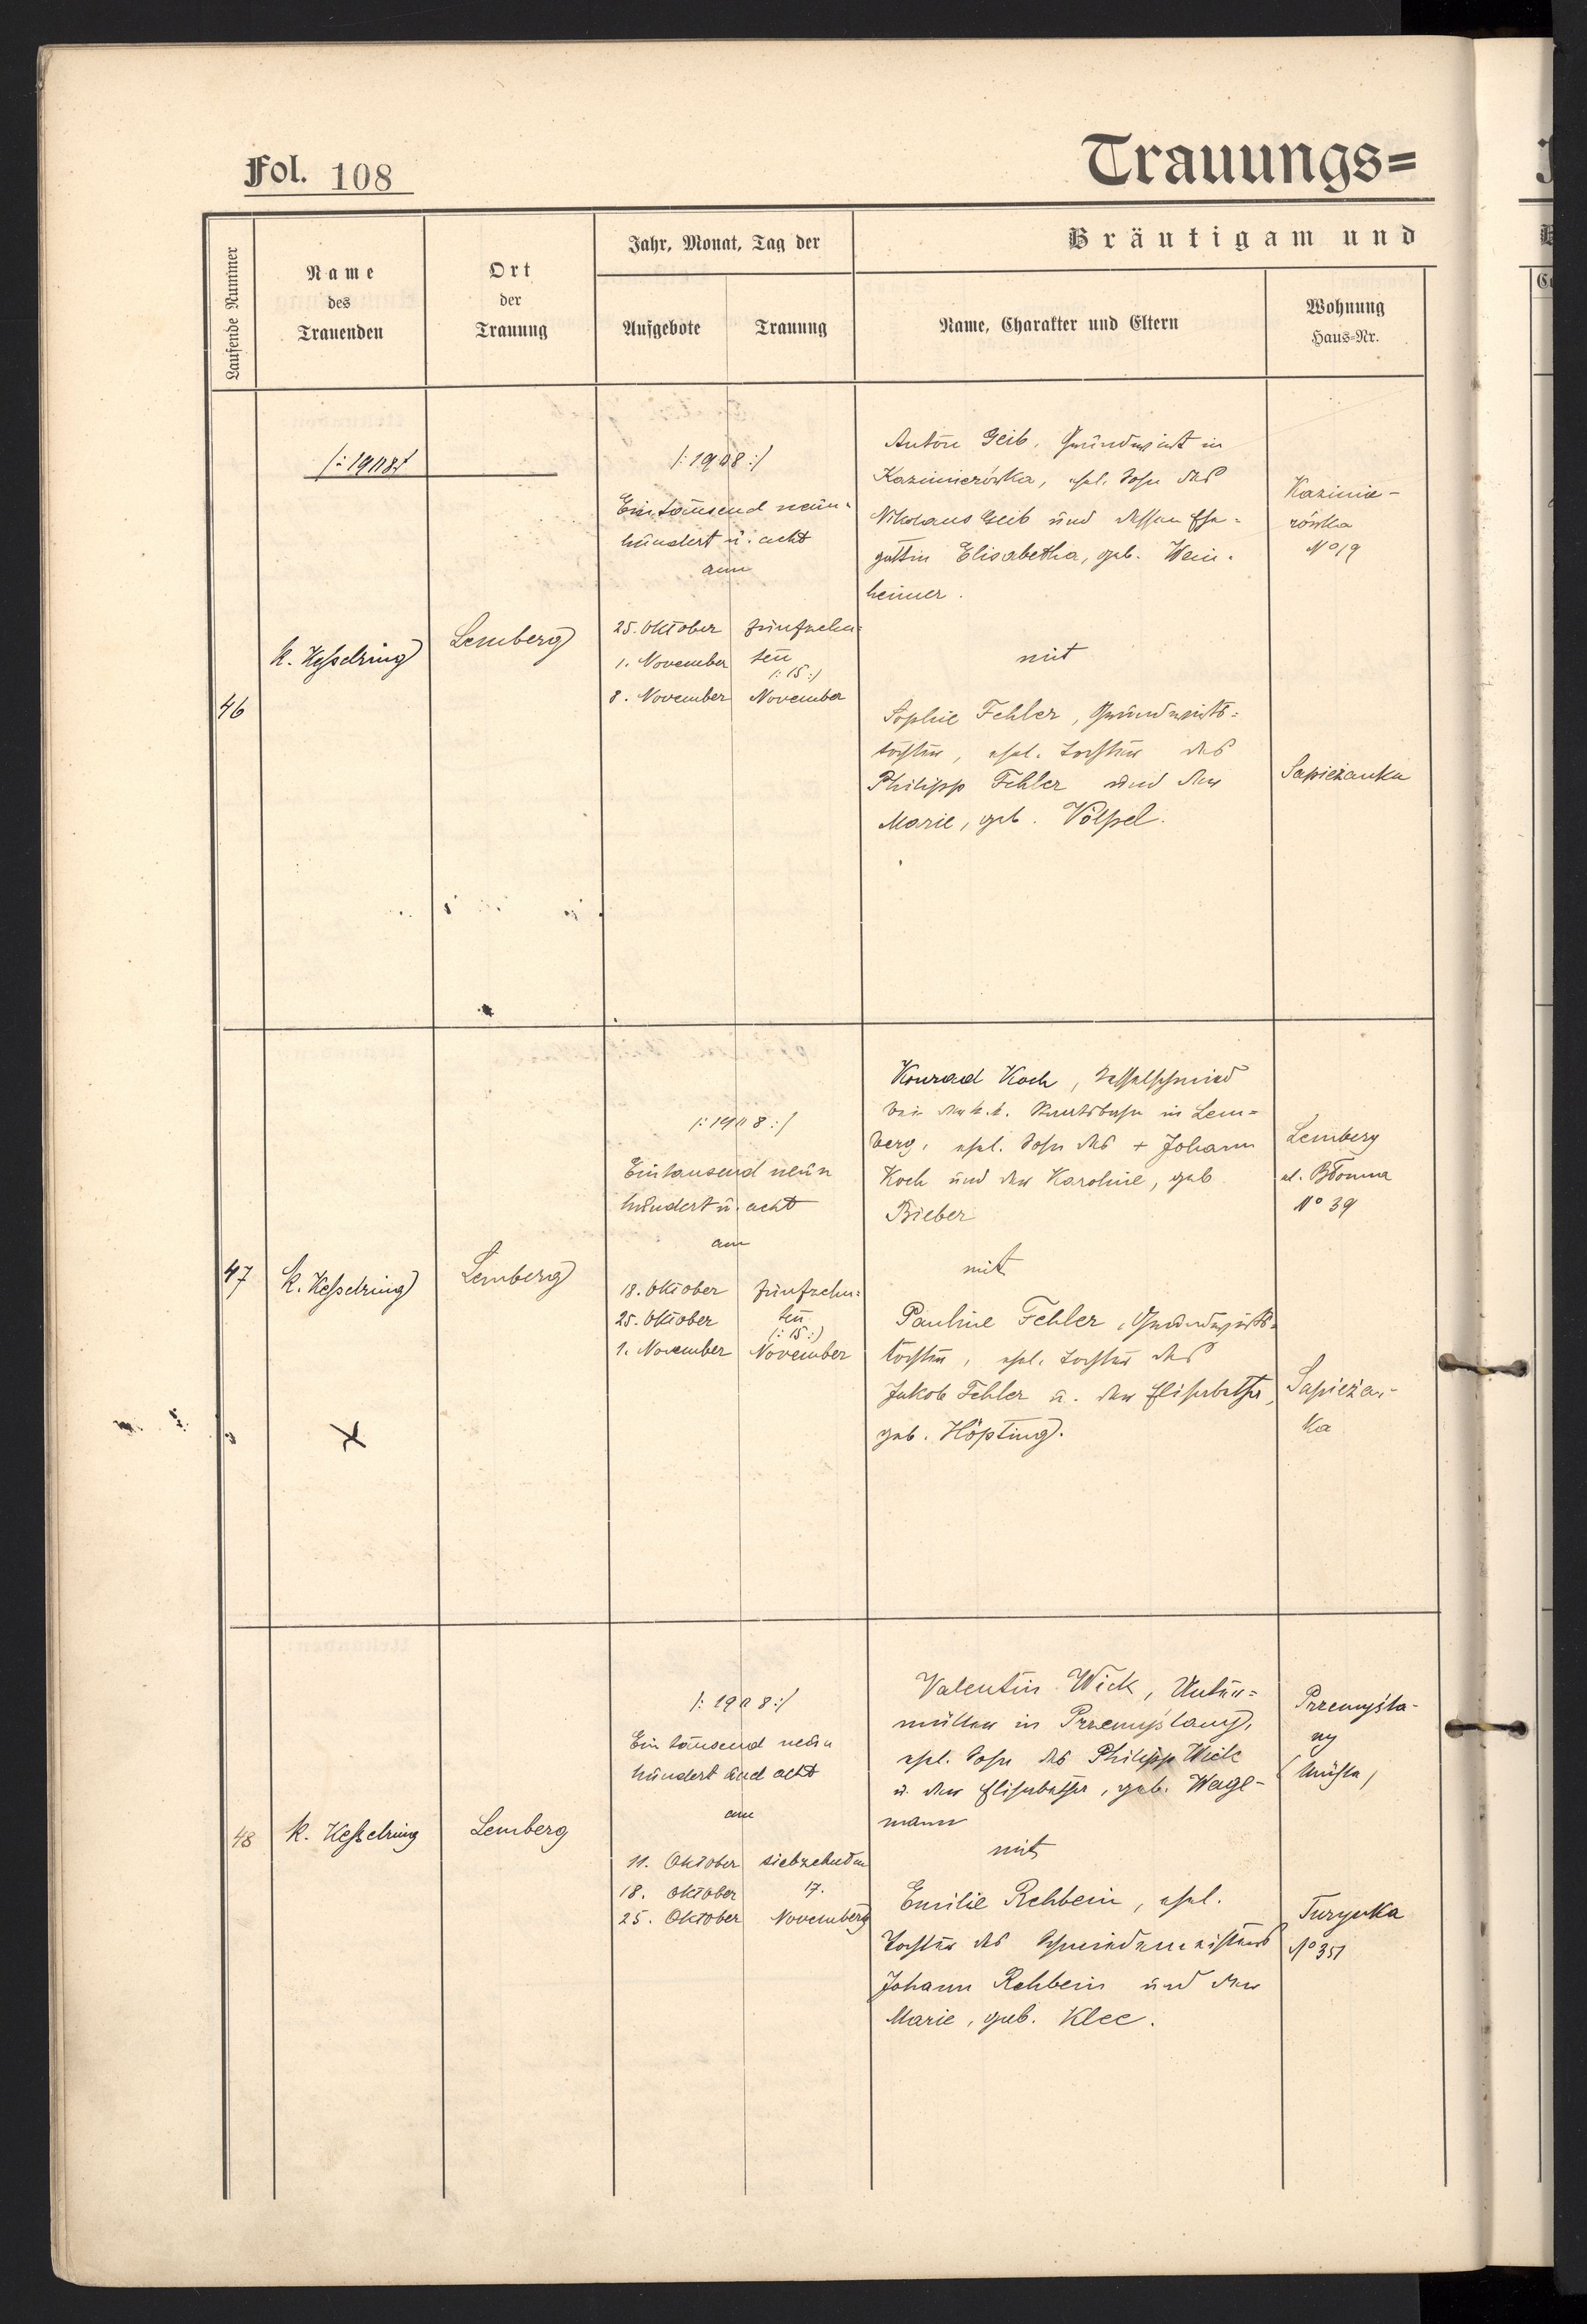 Fol. 108
Trauungs=
Laufende Nummer
Name
des
Trauenden
Ort
der
Trauung
Jahr, Monat, Tag der
Aufgebote
Trauung
Bräutigam und
Name, Charakter und Eltern
Wohnung
Haus=Nr.
/:1908:/
46
K. Keßelring
Lemberg
/:1908:/
Eintausend neun-
hundert u. acht
am
25. Oktober
1. November
8. November
fünfzehn=
ten
/:15:/
November
Anton Geib, Grundwirt in
Kazimierówka, ehel. Sohn des
Nikolaus Geib und dessen Ehe=
gattin Elisabetha, geb. Wein-
heimer.
mit
Sophie Fehler, Grundwirts=
tochter, ehel. Tochter des
Philipp Fehler und der
Marie, geb. Völpel.
Kazimie-
rówka
No 19
Sapieżanka
47
K. Keßelring
Lemberg
/:1908:/
Eintausend neun
hundert u. acht
am
18. Oktober
25. Oktober
1. November
fünfzehn=
ten
(:15:)
November
Konrad Koch, Kesselschmied
bei der k.k. Staatsbahn in Lem=
berg, ehel. Sohn des + Johann
Koch und der Karoline, geb
Bieber
mit
Pauline Fehler, Grundwirts=
tochter, ehel. Tochter des
Jakob Fehler u. der Elisabetha,
geb. Höpting.
Lemberg
ul. Błonna
No 39
Sapieżan-
ka
X
48
K. Keßelring
Lemberg
/:1908:/
Ein tausend neun
hundert und acht
am
11. Oktober
18. Oktober
25. Oktober
siebzehnten
17.
November
Valentin Wick,
müller in Przemyślany,
ehel. Sohn des Philipp Wick
u. der Elisabetha, geb. Wage-
mann
mit
Emilie Rehbein, ehel.
Tochter des Schmiedemeisters
Johann Rehbein und der
Marie, geb. Klee.
Przemyśla-
ny
(Mühle)
Turynka
No 351